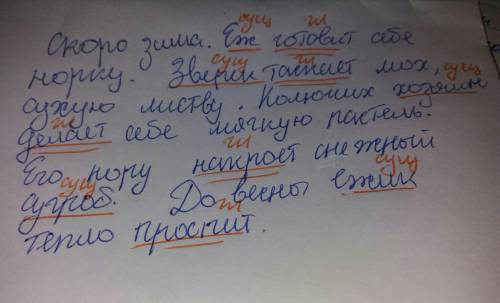 сущ гл
Скоро зима. Еж готовит себе
сущ гл
норку. Зверек таскает мох, сущ
сухую листву. Колючих хозяин
гл
делает себе мягкую постель.
гл
Его нору накроет снежный
сущ сущ
сугроб. До весны ежик
гл
тепло проспит.